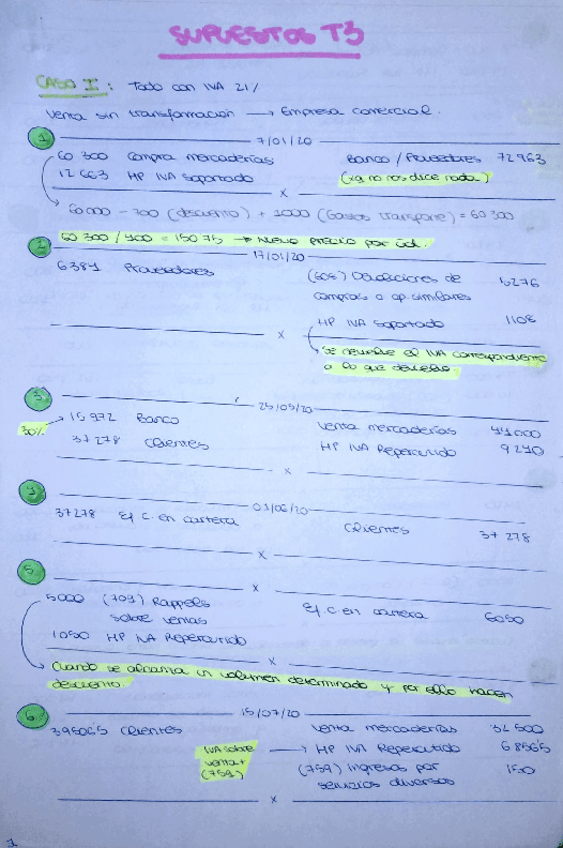 SUPUESTOS T3
CASO I: Todo con IVA 21%
Venta sin transformación → Empresa comercial.
1 7/01/20
60 300 Compra mercaderías Banco / Proveedores 72963
12 663 HP IVA Soportado (xq no nos dice nada)
x
60 000 - 700 (descuento) + 1000 (Gastos transporte) = 60 300
2 60 300 / 400 = 150'75 → Nuevo precio por ud.
17/01/20
6384 Proveedores (608) Devoluciones de 5276
compras o op. similares
HP IVA Soportado 1108
x
Se devuelve el IVA correspondiente
a lo que devuelvo
3 25/05/20
30% 15972 Banco Venta mercaderías 44000
37278 Clientes HP IVA Repercutido 9240
x
4 01/06/20
37278 Ef. C. en cartera Clientes 37278
x
5 x
5000 (709) Rappels Ef. C. en cartera 6050
sobre ventas
1050 HP IVA Repercutido
x
Cuando se alcanza un volumen determinado y por ello hacen
descuento
6 15/07/20
39506'5 Clientes Venta mercaderías 32500
IVA sobre → HP IVA Repercutido 6856'5
venta + (759) Ingresos por 150
(759) servicios diversos
x
1